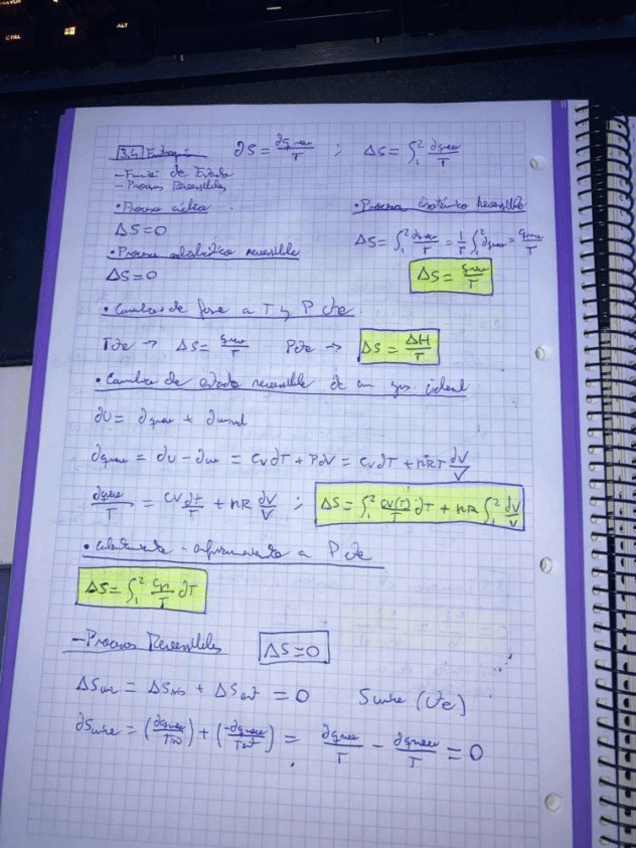 CTRL
ALT
3.4 Entropía ∂S = ∂qrev/T ; ΔS = ∫₁² ∂qrev/T
- Funció de Estado
- Procesos Reversibles
• Proceso cíclico
ΔS=0
• Proceso adiabático reversible
ΔS=0
• Proceso isotérmico reversible
ΔS = ∫₁² ∂qrev/T = 1/T ∫₁² ∂qrev = qrev/T
ΔS = qrev/T
• Cambios de fase a T y P cte
Tcte → ΔS = qrev/T Pcte → ΔS = ΔH/T
• Cambio de estado reversible de un gas ideal
∂U = ∂qrev + ∂wrev
∂qrev = ∂U - ∂wrev = CV∂T + P∂V = CV∂T + nRT ∂V/V
∂qrev/T = CV∂T/T + nR ∂V/V ; ΔS = ∫₁² CV(T)/T ∂T + nR ∫₁² ∂V/V
• calentamiento - enfriamiento a P cte
ΔS = ∫₁² Cp/T ∂T
- Procesos Reversibles ΔS=0
ΔSuni = ΔSsis + ΔSent = 0 Suniv (cte)
∂Suniv = (∂qrev/Tsis) + (-∂qrev/Tent) = ∂qrev/T - ∂qrev/T = 0